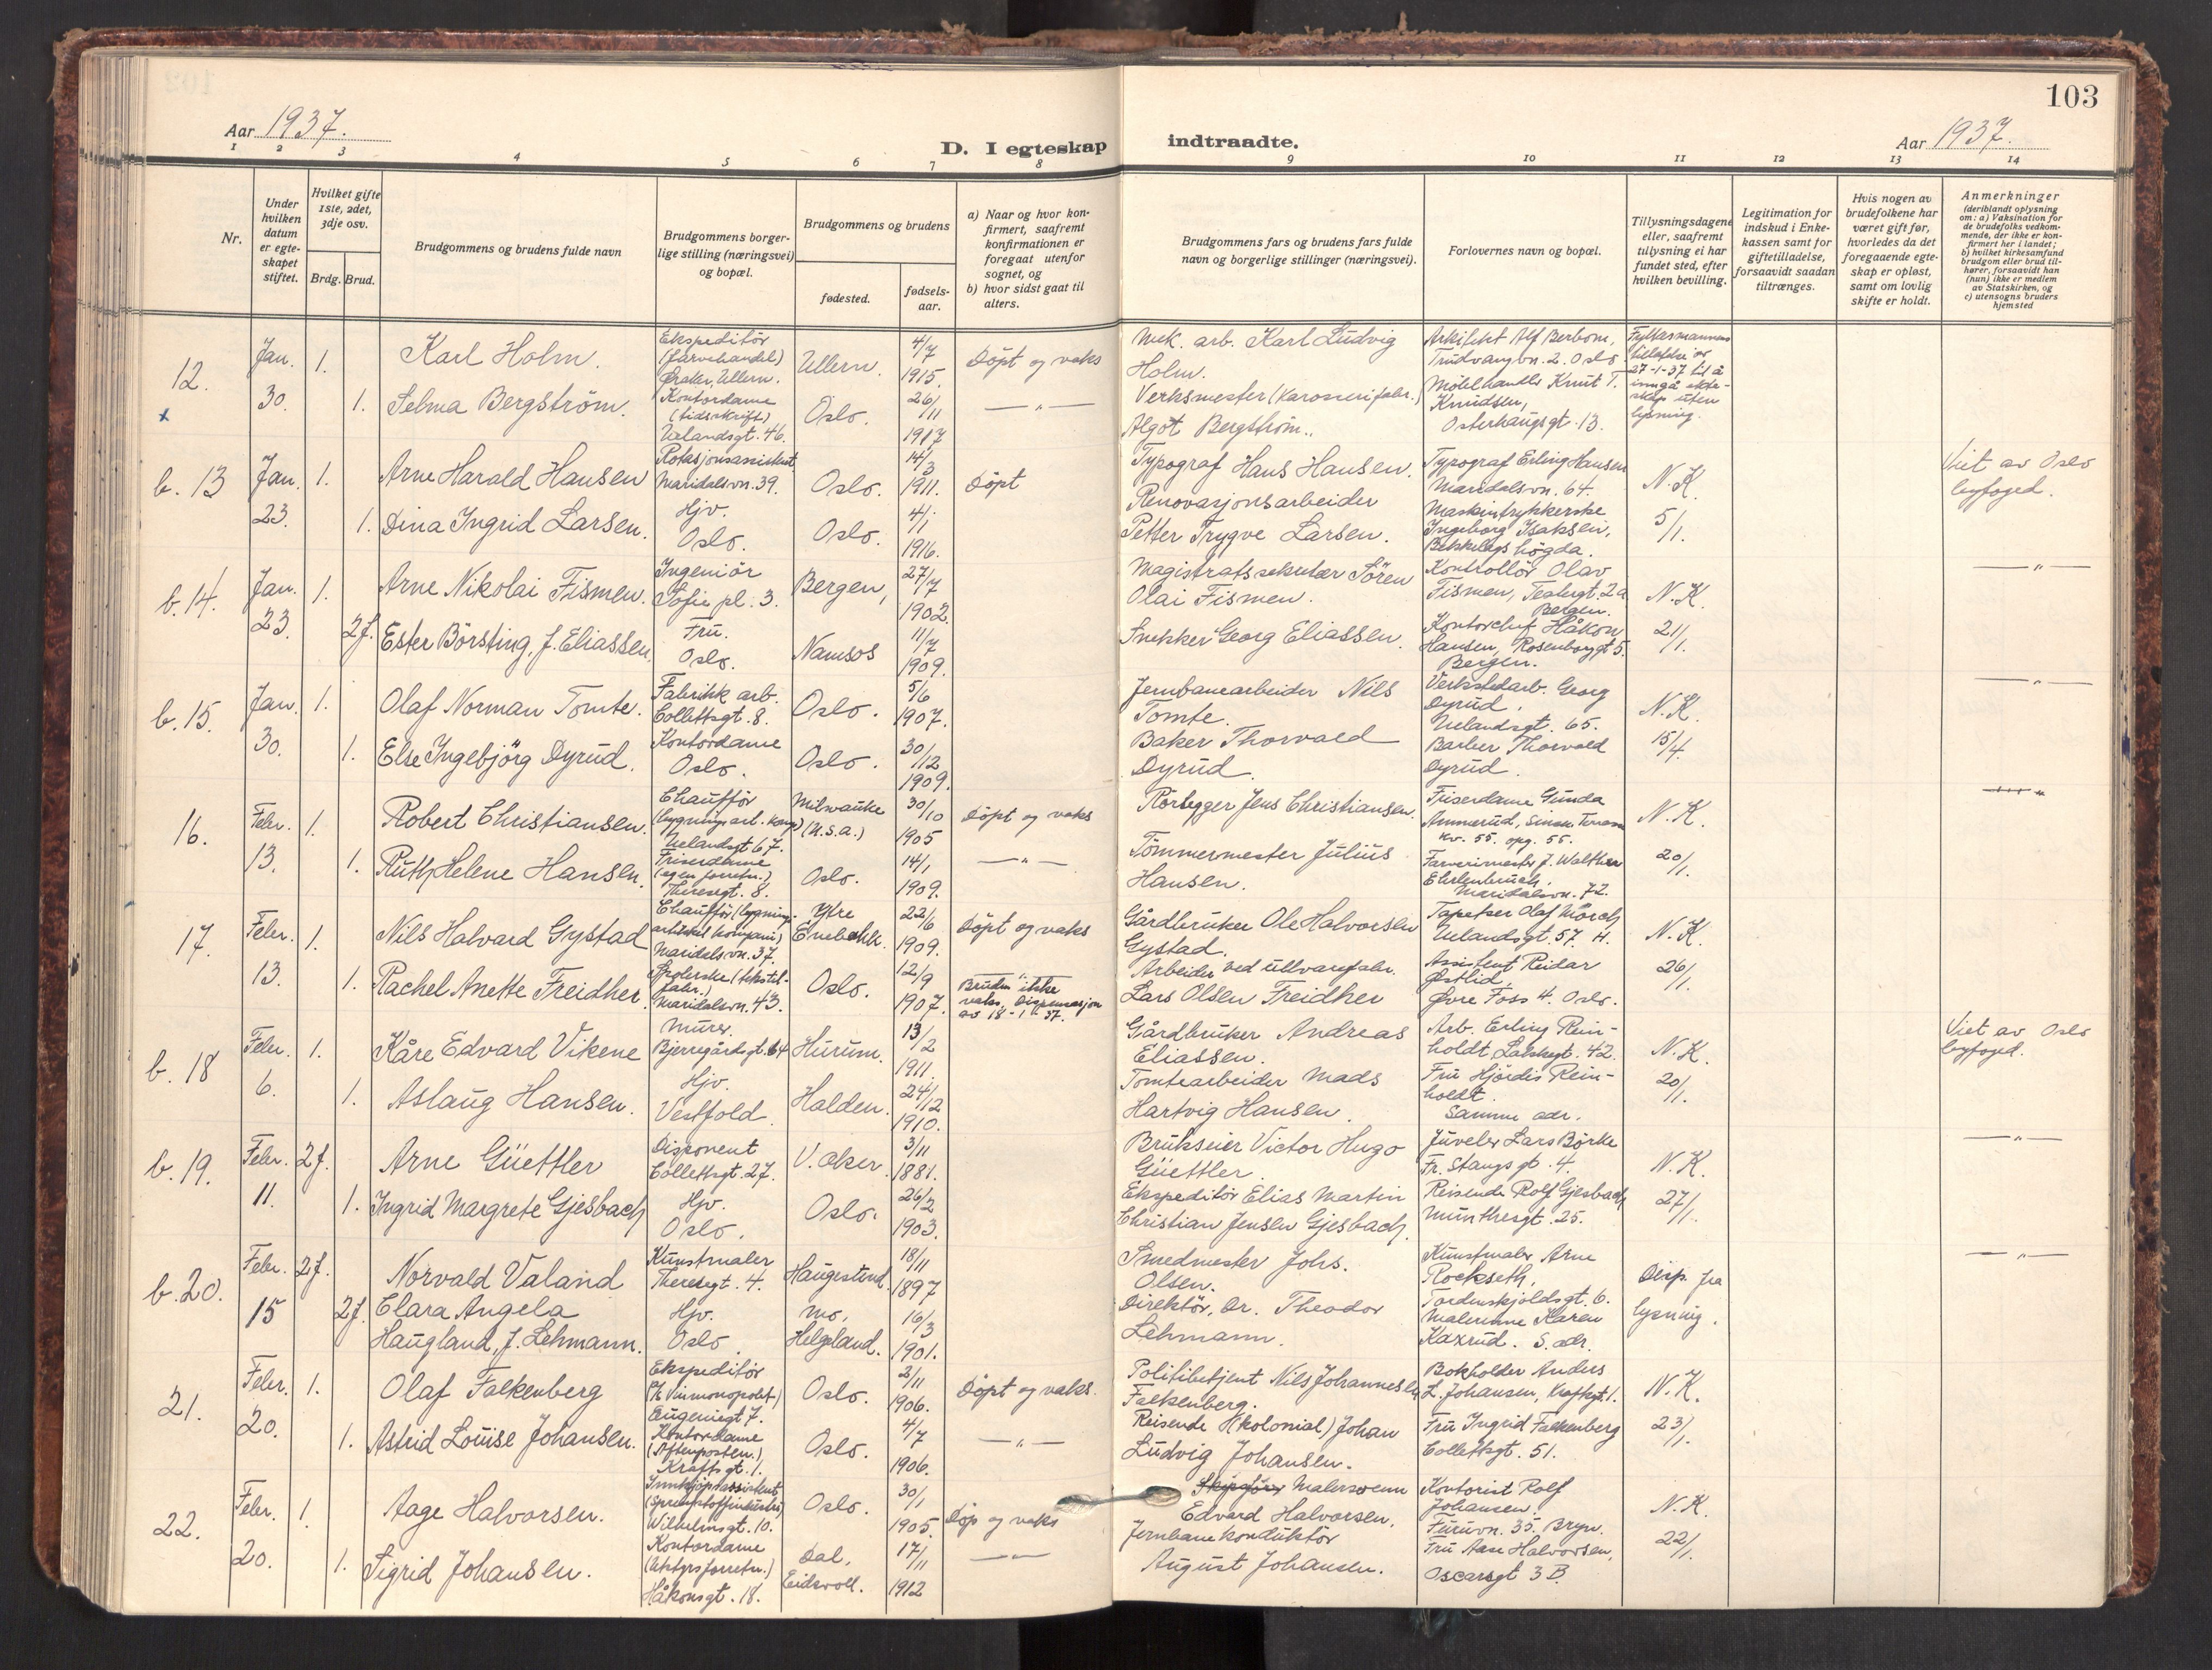 103
Aar 1937.
D. I egteskap indtraadte.
Aar 1937.
1 2 3 4 5 6 7 8 9 10 11 12 13 14
Nr.
Under hvilken datum er egteskapet stiftet.
Hvilket gifte 1ste, 2det, 3dje osv.
Brdg. Brud.
Brudgommens og brudens fulde navn
Brudgommens borgerlige stilling (næringsvei) og bopæl.
Brudgommens og brudens
fødested.
fødselsaar.
a) Naar og hvor konfirmert, saafremt konfirmationen er foregaat utenfor sognet, og
b) hvor sidst gaat til alters.
Brudgommens fars og brudens fars fulde navn og borgerlige stillinger (næringsvei).
Forlovernes navn og bopæl.
Tillysningsdagene eller, saafremt tillysning ei har fundet sted, efter hvilken bevilling.
Legitimation for indskud i Enkekassen samt for giftetilladelse, forsaavidt saadan tiltrænges.
Hvis nogen av brudefolkene har været gift før, hvorledes da det foregaaende egteskap er opløst, samt om lovlig skifte er holdt.
Anmerkninger (deriblandt oplysning om: a) Vaksination for de brudefolks vedkommende, der ikke er konfirmert her i landet; b) hvilket kirkesamfund brudgom eller brud tilhører, forsaavidt han (hun) ikke er medlem av Statskirken, og c) utensogns bruders hjemsted
12. Jan. 30. 1. Karl Holm. Ekspeditör (farvehandel) Øraker, Ullern. Ullern. 4/7 1915. Döpt og vaks Mek. arb. Karl Ludvig Holm. Arkitekt Alf Berbom, Trudvangvn. 2. Oslo. Fylkesmannens tillatelse av 27-1-37 til å inngå ekteskap uten lysning.
x 1. Selma Bergström. Kontordame (tidsskrift) Uelandsgt. 46. Oslo. 26/11 1917 — " — Verksmester (karosserifabr.) Algot Bergström. Möbelhandler Knut T. Knudsen, Osterhausgt. 13.
b. 13 Jan. 23. 1. Arne Harald Hansen Rotasjonsassistent Maridalsvn. 39. Oslo. 14/3 1911. Döpt Typograf Hans Hansen. Typograf Erling Hansen Maridalsvn. 64. N.K. 5/1. Viet av Oslo byfoged.
1. Dina Ingrid Larsen. Hjv. Oslo. Oslo. 4/1 1916. Renovasjonsarbeider Petter Trygve Larsen. Maskintrykkerske Ingeborg Isaksen, Bekkelagshögda.
b. 14. Jan. 23. 1. Arne Nikolai Fismen. Ingeniör Sofie pl. 3. Bergen, 27/7 1902. Magistratssekretær Sören Olai Fismen. Kontrollör Olav Fismen, Teatergt. 2a Bergen. N.K. 21/1. — " —
2f. Ester Börsting, f. Eliassen. Fru. Oslo. Namsos 11/7 1909. Snekker Georg Eliassen. Kontorchef Håkon Hansen, Rosenborggt 5. Bergen.
b. 15. Jan. 30. 1. Olaf Norman Tomte. Fabrikk arb. Collettsgt. 8. Oslo. 5/6 1907. Jernbanearbeider Nils Tomte. Verkstedarb. Georg Dyrud, Uelandsgt. 65. N.K. 15/4 — " —
1. Else Ingebjörg Dyrud. Kontordame Oslo. Oslo. 30/12 1909. Baker Thorvald Dyrud. Barber Thorvald Dyrud.
16. Febr. 13. 1. Robert Christiansen. Chauffør (bygningsart. komp) Uelandsgt 67. Milwauke (U.S.a.) 30/10 1905 Döpt og vaks Rörlegger Jens Christiansen. Friserdame Gunda Ammerud, Sinsen Terrasse kv. 55. opg. 55. N.K. 20/1.
1. Ruth Helene Hansen. Friserdame (egen forretn.) Theresegt. 8. Oslo. 14/1 1909. — " — Tömmermester Julius Hansen. Farverimester J. Walther Ehrlenbruch. Maridalsvn. 72.
17. Febr. 13. 1. Nils Halvard Gystad Chauffør (bygningsartikkel kompani) Maridalsvn. 37. Ytre Enebakk. 22/6 1909. Döpt og vaks Gårdbruker Ole Halvorsen Gystad. Tapetser Olaf Mörch Uelandsgt. 57. H. N.K. 26/1.
1. Rachel Anette Freidher. Spolerske (tekstilfabr.) Maridalsvn. 43. Oslo. 12/9 1907. Bruden ikke vaks. Dispensasjon av 18-1-37. Arbeider ved ullvarefabr. Lars Olsen Freidher Assistent Reidar Östlid, Övre Foss 4. Oslo.
b. 18 Febr. 6. 1. Kåre Edvard Vikene Murer. Bjerregårdsgt. 64 Hurum. 13/2 1911. Gårdbruker Andreas Eliassen. Arb. Erling Reinholdt, . 42. N.K. 20/1. Viet av Oslo byfoged.
1. Aslaug Hansen. Hjv. Vestfold. Halden. 24/12 1910. Tomtearbeider Mads Hartvig Hansen. Fru Hjördis Reinholdt. Samme adr.
b. 19. Febr. 11. 2f. Arne Güettler Disponent Collettsgt. 27. V. Aker. 3/11 1881. Brukseier Victor Hugo Güettler. Juveler Lars Börke Fr. Stangsgt. 4. N.K. 27/1. — " —
1. Ingrid Margrete Gjesbach Hjv. Oslo. Oslo. 26/2 1903. Ekspeditör Elias Martin Christian Jensen Gjesbach. Reisende Rolf Gjesbach Munthesgt. 25.
b. 20. Febr. 15 2f. Norvald Valand Kunstmaler Theresegt. 4. Haugesund. 18/11 1897 Smedmester Johs. Olsen. Kunstmaler Arne Rockseth, Tordenskjoldsgt. 6. Disp. fra lysning. — " —
2f. Clara Angela Haugland, f. Lehmann. Hjv. Oslo. Mo, Helgeland. 16/3 1901. Direktör, Dr. Theodor Lehmann. Malerinne Karen Kaxrud. S. adr.
21. Febr. 20. 1. Olaf Falkenberg Ekspeditör (A/S Vinmonopolet) Eugeniegt 7. Oslo. 2/11 1906. Döpt og vaks. Politibetjent Nils Johannes Falkenberg. Bokholder Anders L. Johansen, Kraftsgt. 1. N.K. 23/1.
1. Astrid Louise Johansen. Kontordame (Aftenposten.) Kraftsgt. 1. Oslo. 4/7 1906. — " — Reisende (kolonial) Johan Ludvig Johansen. Fru Ingrid Falkenberg Collettsgt. 51.
22. Febr. 20. 1. Aage Halvorsen. Innkjöpsassistent (sprengstoffindustri) Wilhelmsgt. 10. Oslo. 30/1 1905. Döp og vaks Malersvenn Edvard Halvorsen. Kontorist Rolf Johansen, Furuvn. 35. Bryn. N.K. 22/1.
1. Sigrid Johansen. Kontordame Håkonsgt. 18. Dal, Eidsvoll. 17/11 1912 — " — Jernbanekonduktör August Johansen. Fru Aase Halvorsen, Oscarsgt 3 B.